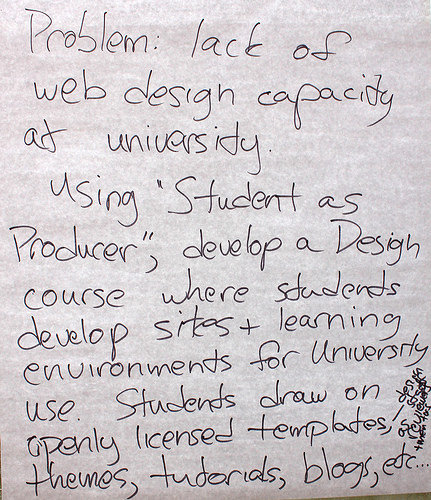 Problem: lack of
web design capacity
at university.
Using "Student as
Producer", develop a Design
course where students
develop sites + learning
environments for University
use. Students draw on
openly licensed templates,
themes, tutorials, blogs, etc...